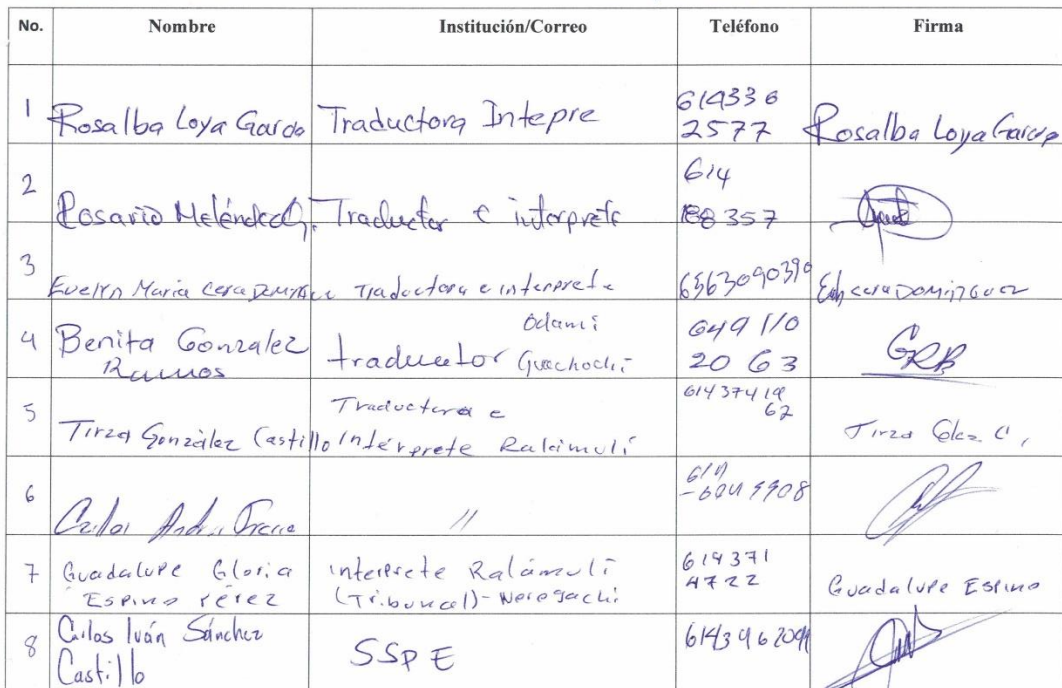 No. Nombre Institución/Correo Teléfono Firma
1 Rosalba Loya Garcia Traductora Intepre 614336 2577 Rosalba Loya Garcia
2 Rosario Meléndez G. Traductor e interprete 614 188 357
3 Evelyn Maria Cera Dominguez Traductora e interprete 6563090390 Cera Dominguez
4 Benita Gonzalez Ramos traductor Odami Guachochi 649 110 20 63 GRB
5 Tirza González Castillo Traductora e Intérprete Ralámuli 614374 19 62 Tirza Glez C.
6 Carlos //
7 Guadalupe Gloria Espino Pérez interprete Ralámuli (Tribunal)-Norogachi 614371 4722 Guadalupe Espino
8 Carlos Iván Sánchez Castillo SSPE